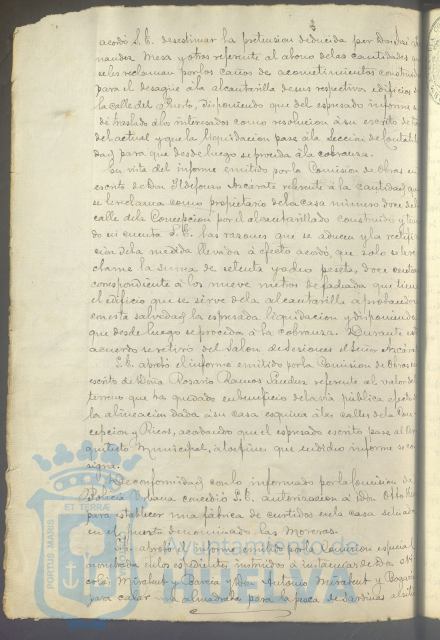 acordó S.E. desestimar la pretension deducida por Don José
nandez Mesa y otros referente al abono de las cantidades que
se les reclaman por los caños de acometimientos construidos
para el desagüe á la alcantarilla de sus respectivos edificios de
la calle del Puerto, disponiendo que del espresado informe se
dé traslado á los interesados como resolucion á su escrito de
del actual y que la liquidacion pase á la Seccion de Contabili
dad para que desde luego se proceda á la cobranza.
En vista del informe emitido por la Comision de Obras en
escrito de Don Ildefonso Azcárate referente á la cantidad que
se le reclama como propietario de la casa número doce de la
calle de la Concepcion por el alcantarillado construido y tenien
do en cuenta S.E. las razones que se aducen y la rectifi
cacion de la medida llevada á efecto acordó, que solo se le re
clame la suma de setenta y ocho pesetas, doce centimos
correspondiente á los nueve metros de fachada que tiene
el edificio que se sirve de la alcantarilla aprobandose
con esta salvedad la espresada liquidacion y disponiendo
que desde luego se proceda á la cobranza. Durante este
acuerdo se retiró del Salon de Sesiones el Señor Azcárate
S.E. aprobó el informe emitido por la Comision de Obras en
escrito de Doña Rosario Ramos referente al valor del
terreno que ha quedado en beneficio de la via pública efecto de
la alineacion dada á su casa esquina á las calles de la Con
cepcion y Ricos, acordando que el espresado escrito pase al Ar
quitecto Municipal, á los fines que en dicho informe se con
signa.
De conformidad con lo informado por la Comision de
Policía Urbana concedió S.E. autorizacion á Don
para establecer una fábrica de curtidos en la casa situada
en el punto denominado las Moreras.
S.E. aprobó el informe emitido por la Comision especial
nombrada en los espedientes instruidos á instancias de Don Ni
colás Mirabent y Garcia y Don Antonio Mirabent y
para calar una almadraba para la pesca de sardinas al sitio
PORTUS MARIS
ET TERRÆ
CUSTODIA
Ayuntamiento de
HUELVA